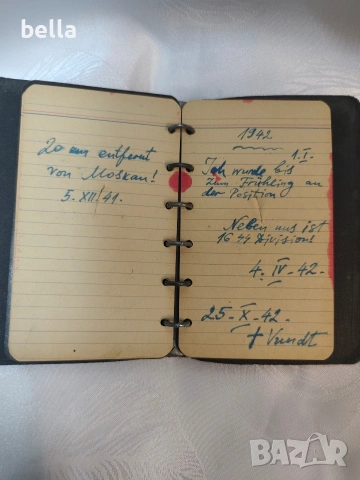 bella
20 km entfernt
von Moskau!
5. XII. 41.
1942
1. I.
Ich wurde bis
zum Frühling an
der Position
Neben uns ist
16 44 Divisions
4. IV. 42.
25. X. 42.
† Vundt
BAZAR